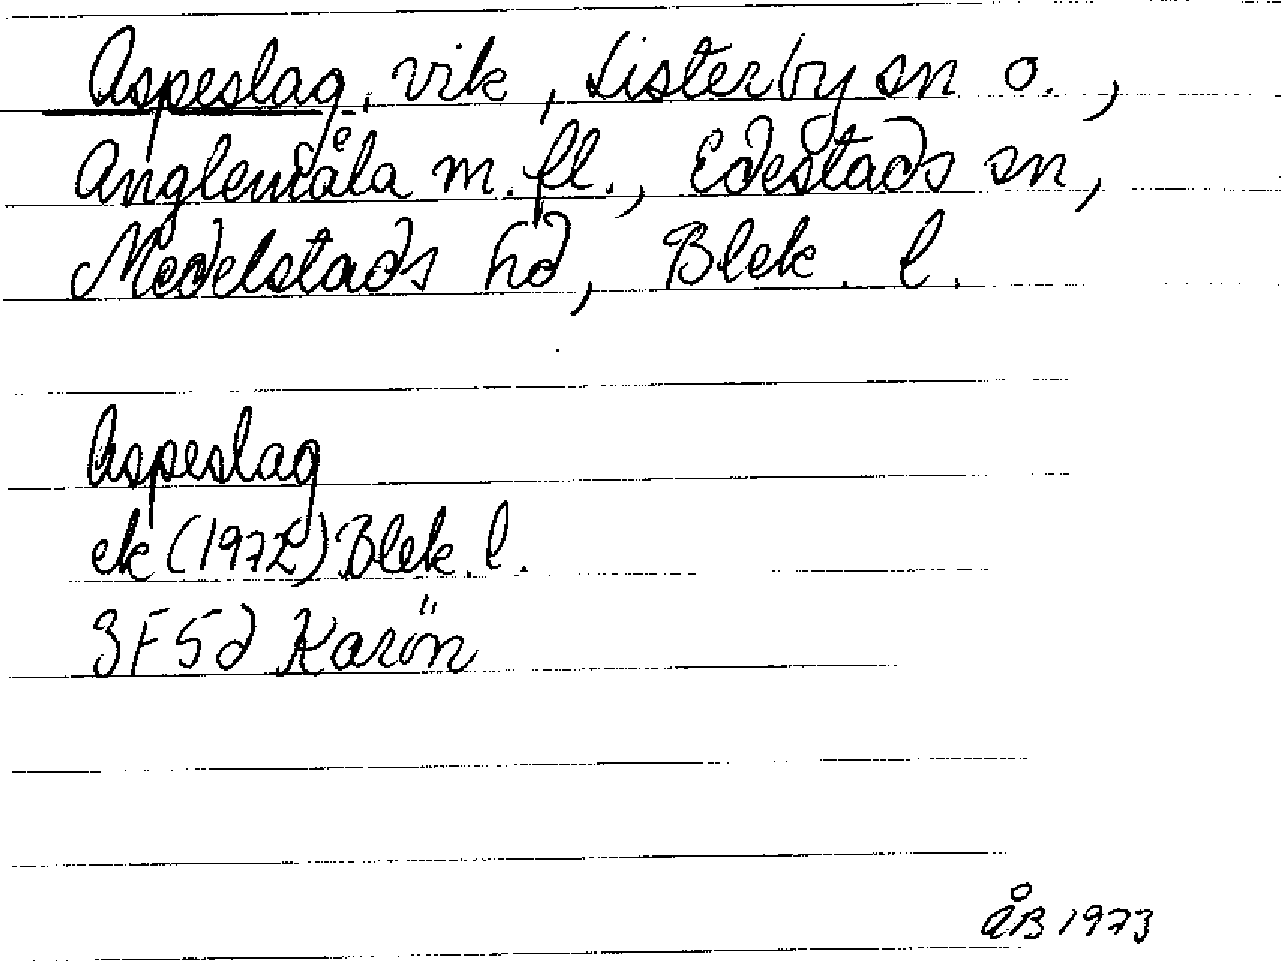 Aspeslag, vik, Listerby sn o.,
Anglemåla m.fl., Edestads sn,
Medelstads hd, Blek. l.
Aspeslag
ek (1972) Blek. l.
3F5d Karön
ÅB 1973